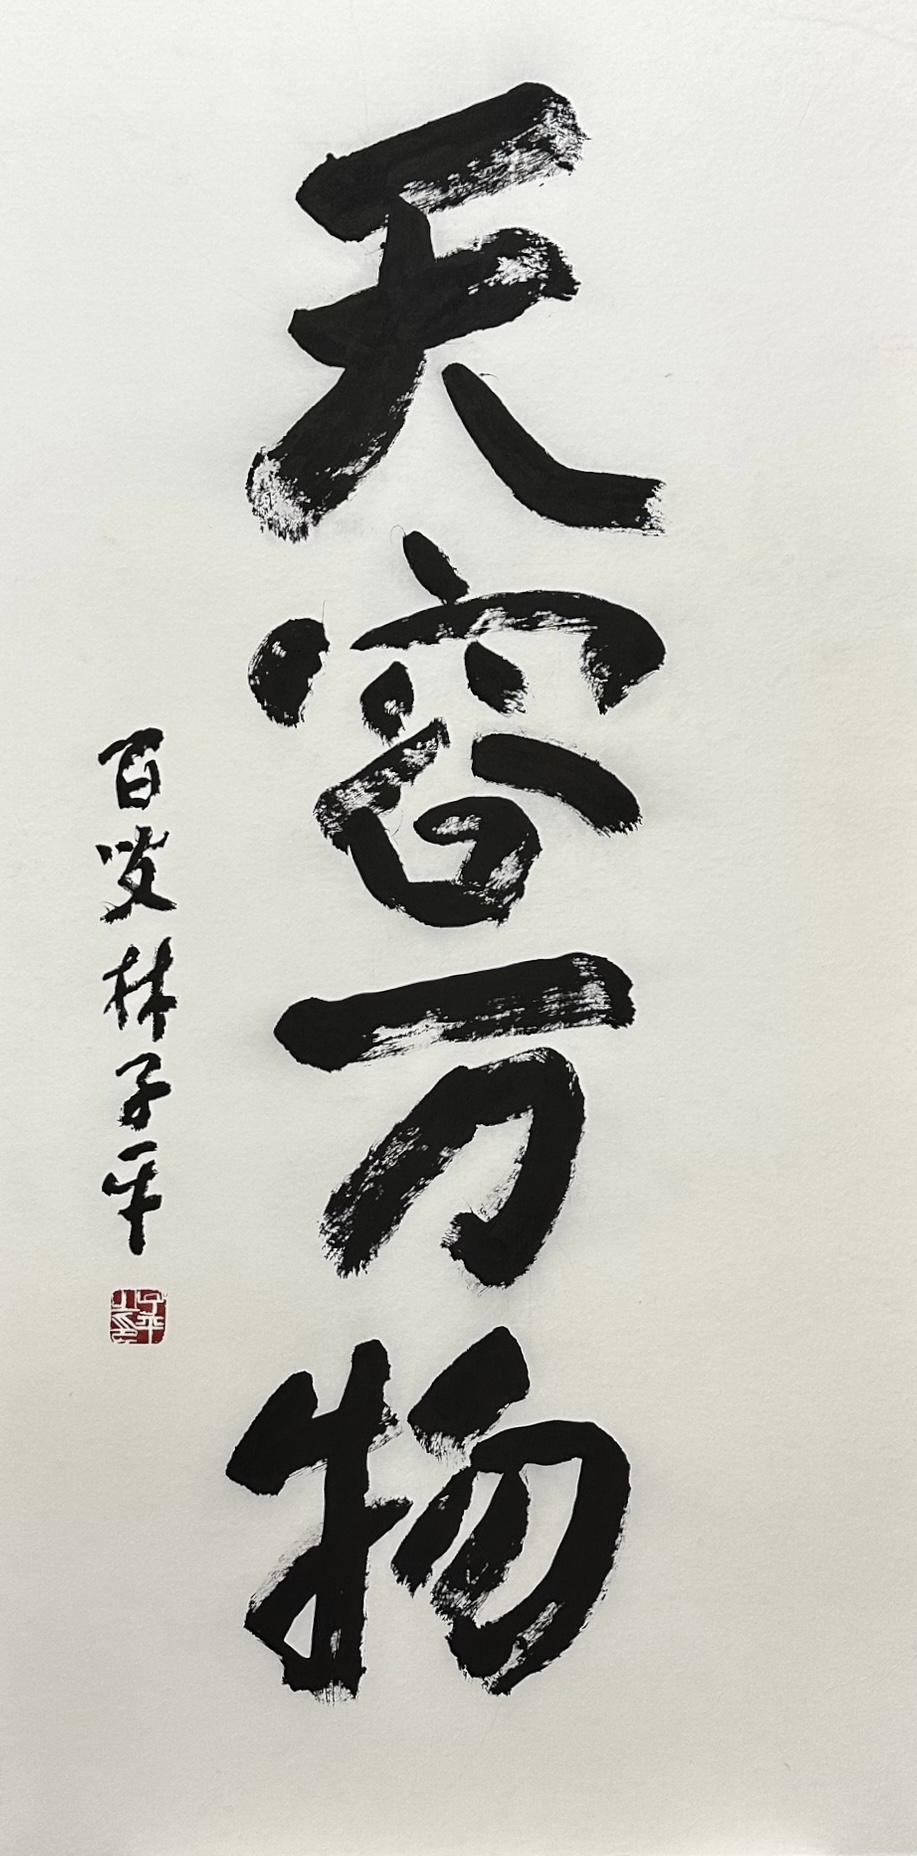 天容万物
百叟林子平